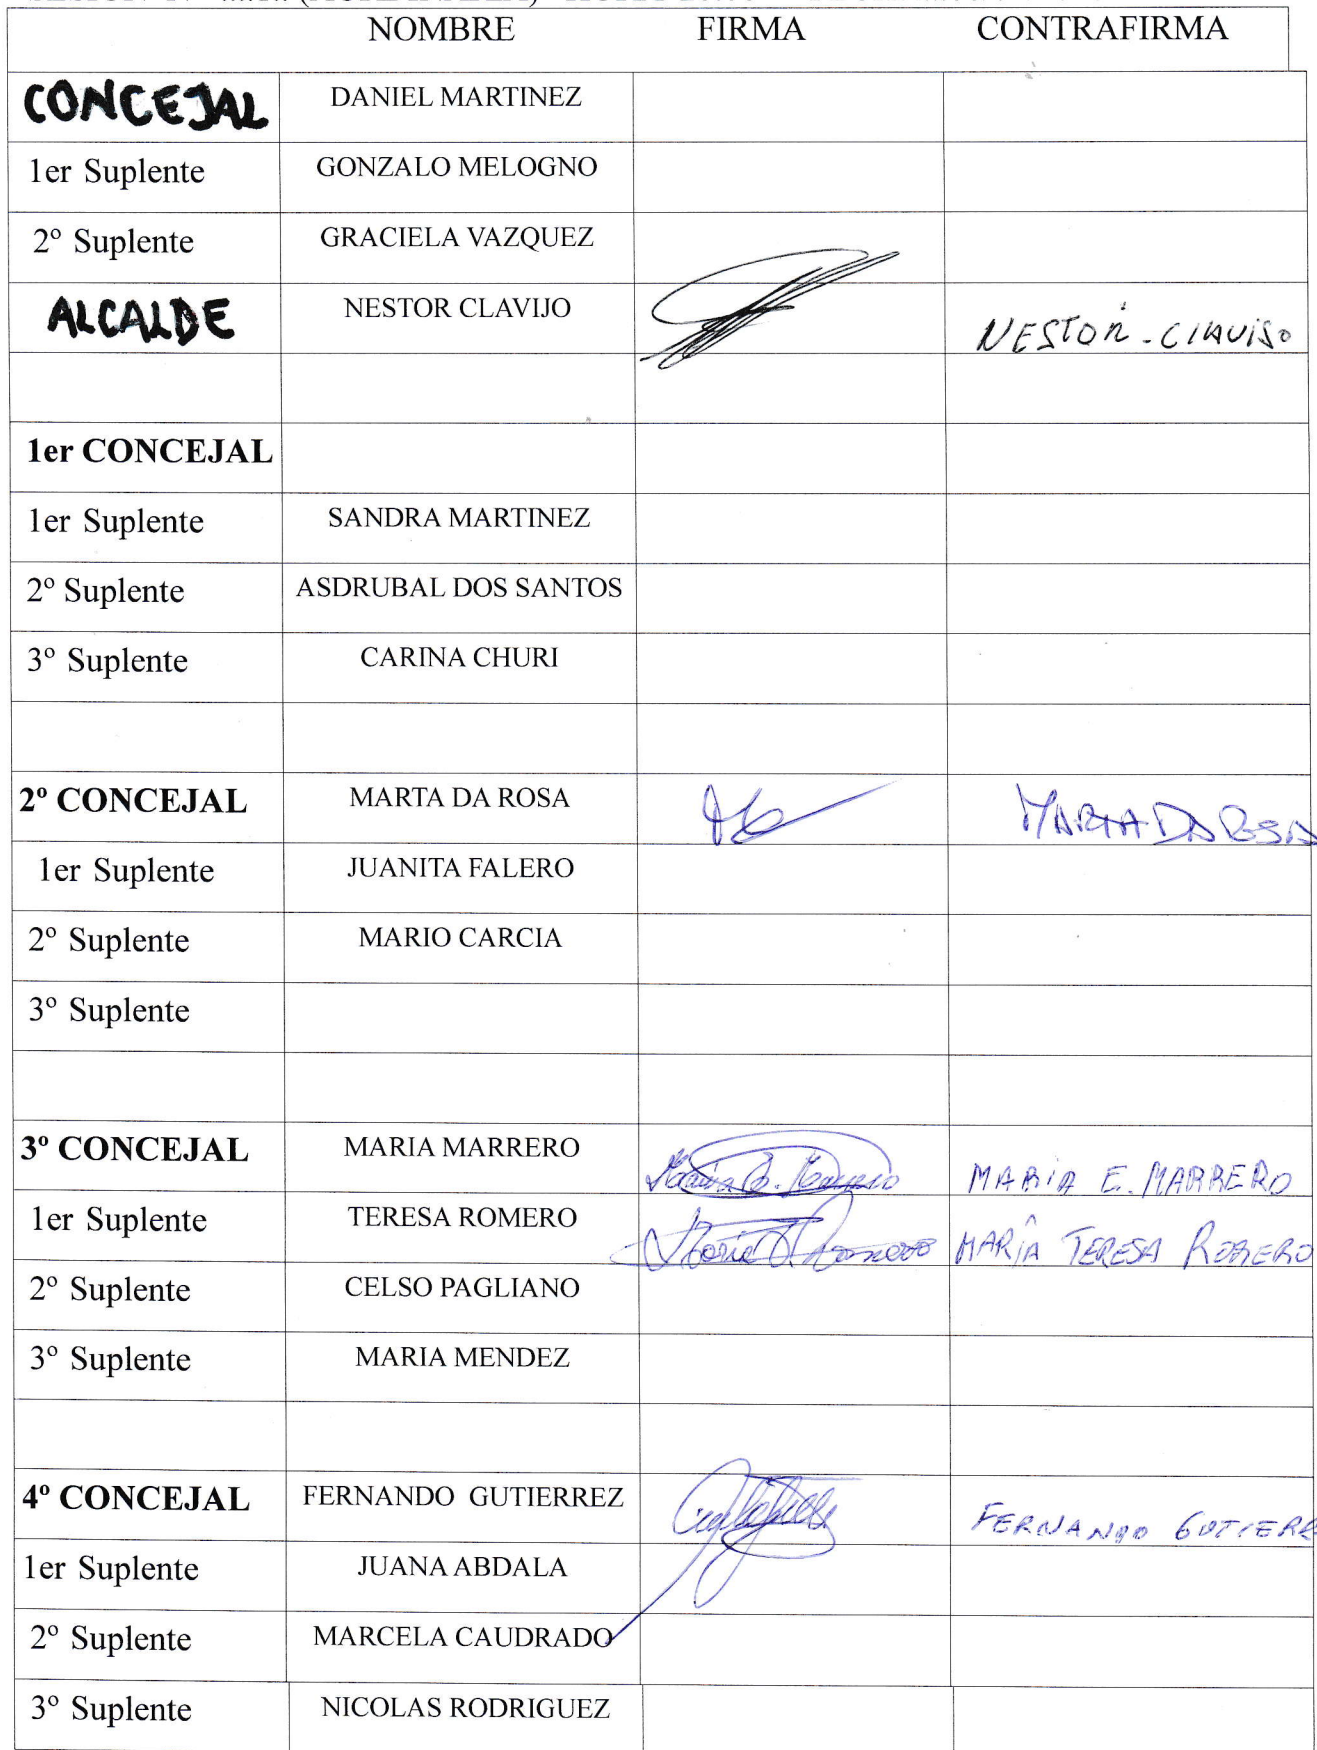 NOMBRE FIRMA CONTRAFIRMA
CONCEJAL DANIEL MARTINEZ
1er Suplente GONZALO MELOGNO
2º Suplente GRACIELA VAZQUEZ
ALCALDE NESTOR CLAVIJO NESTOR - CLAVIJO
1er CONCEJAL
1er Suplente SANDRA MARTINEZ
2º Suplente ASDRUBAL DOS SANTOS
3º Suplente CARINA CHURI
2º CONCEJAL MARTA DA ROSA MARTA DA ROSA
1er Suplente JUANITA FALERO
2º Suplente MARIO CARCIA
3º Suplente
3º CONCEJAL MARIA MARRERO MARIA E. MARRERO
1er Suplente TERESA ROMERO MARÍA TERESA ROMERO
2º Suplente CELSO PAGLIANO
3º Suplente MARIA MENDEZ
4º CONCEJAL FERNANDO GUTIERREZ FERNANDO GUTIERR
1er Suplente JUANA ABDALA
2º Suplente MARCELA CAUDRADO
3º Suplente NICOLAS RODRIGUEZ